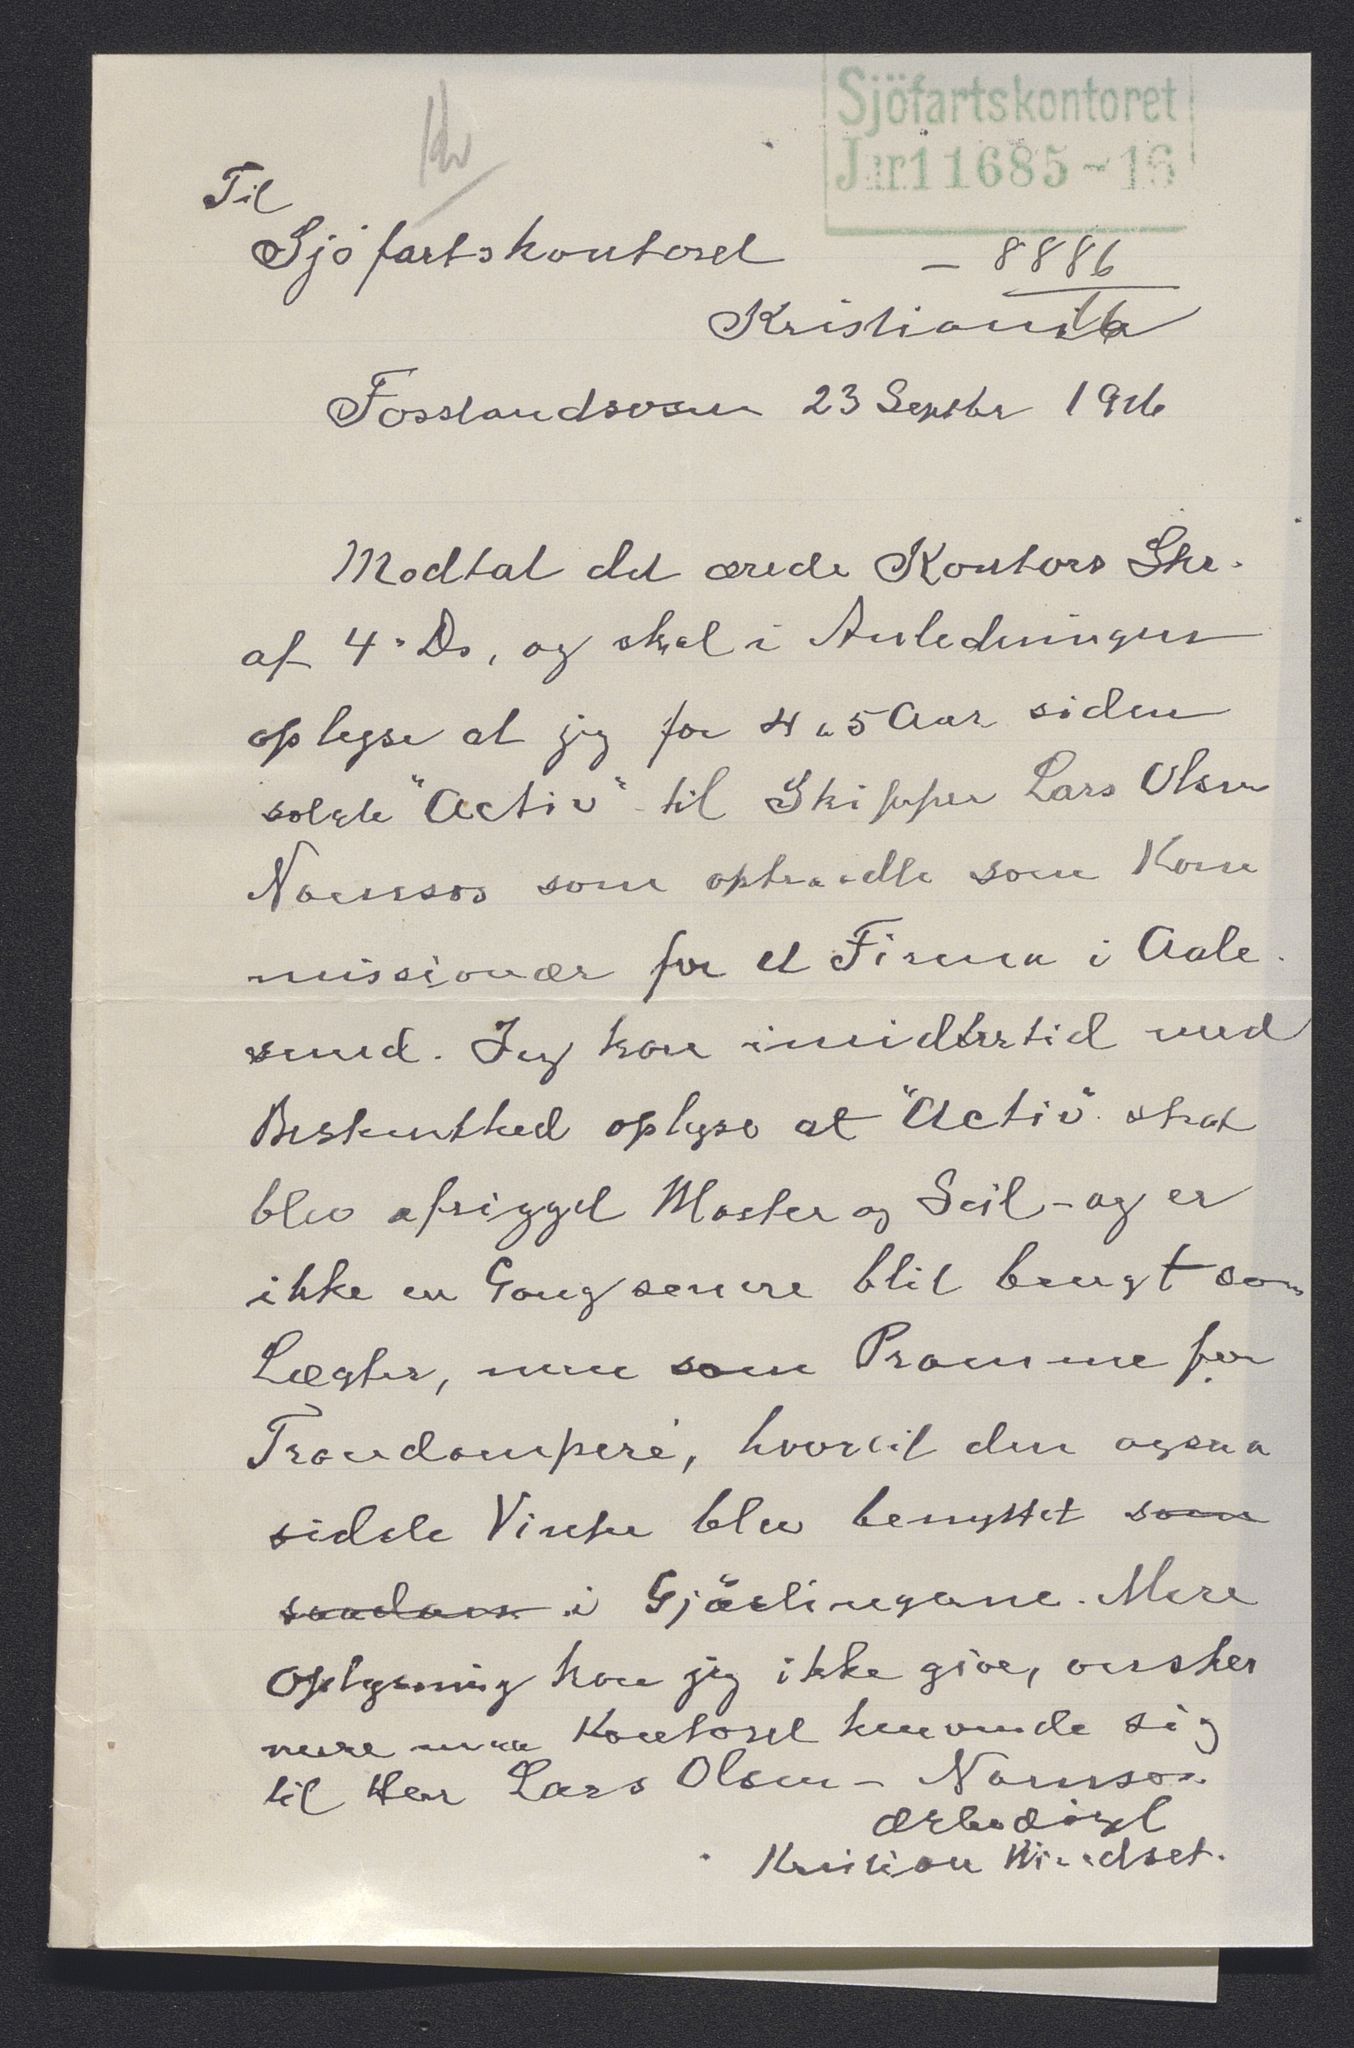 Sjöfartskontoret
Jnr11685-16
Til
Sjøfartskontoret
- 8886
16
Kristiania
Fosslandsosen 23 Septbr 1916
Modtat det ærede Kontors Skr.
af 4. Ds, og skal i Anledningen
oplyse at jeg for 4 a 5 Aar siden
solgte "Activ" til Skipper Lars Olsen
Namsos som optraadte som Kom
missionær for et Firma i Aale.
sund. Jeg kan imidlertid med
Bestemthed oplyse at "Activ" strax
blev afrigget Master og Seil - og er
ikke en Gang senere blit brugt som
Lægter, men som Pramme for
Trandamperi, hvortil den ogsaa
sidste Vinter blev benyttet som
saadan i Gjæslingene. Mere
Oplysning kan jeg ikke give, ønskes
mere maa Kontoret henvende sig
til Herr Lars Olsen - Namsos.
Ærbødigst
Kristian